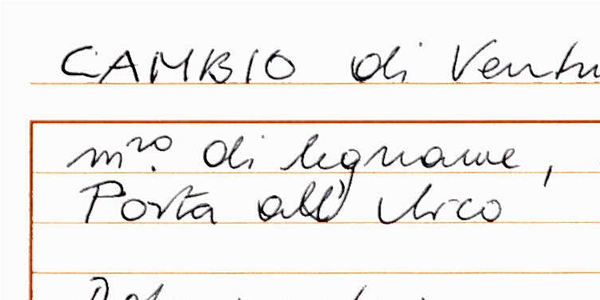 CAMBIO di Ventu
m.ro di legname,
Porta all'Arco